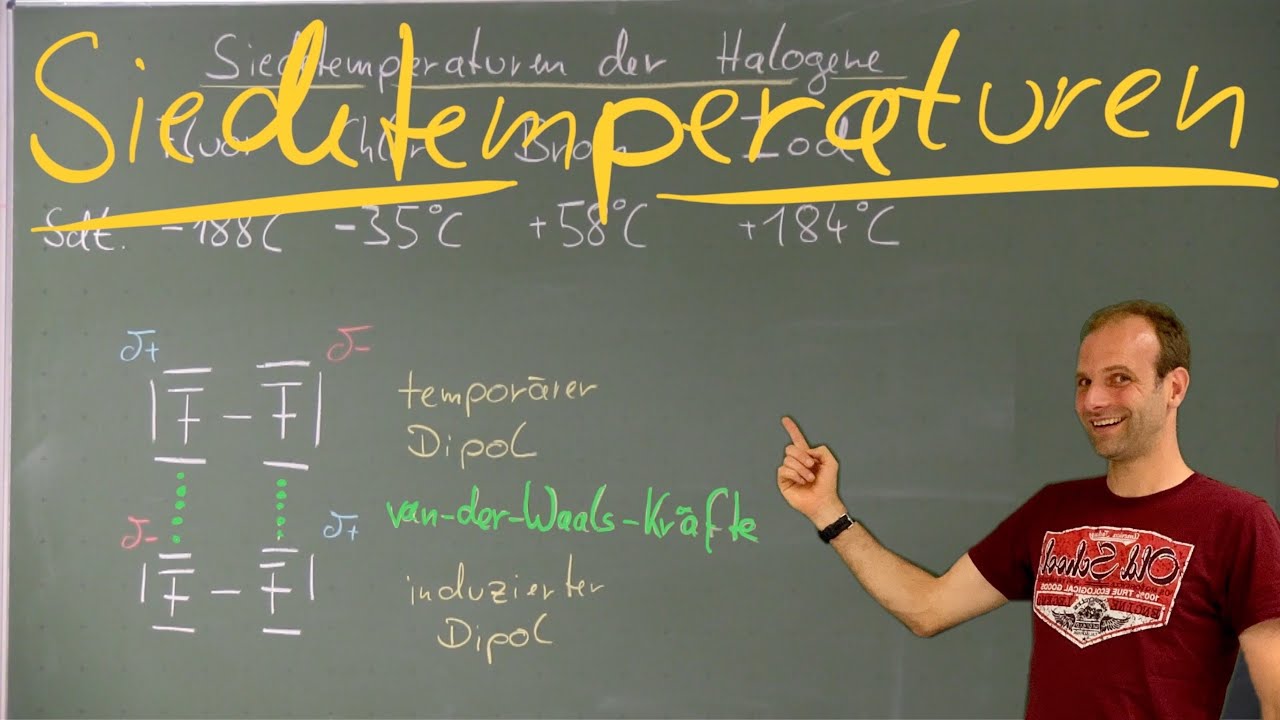 Siedetemperaturen
Siedetemperaturen der Halogene
Fluor Chlor Brom Iod
Sdt. -188°C -35°C +58°C +184°C
δ+ δ-
|F – F|
temporärer
Dipol
van-der-Waals-Kräfte
δ- δ+
|F – F|
induzierter
Dipol
Old School
100% TRUE ECOLOGICAL GOODS